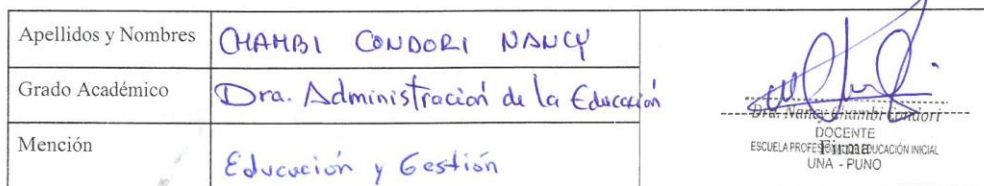 Apellidos y Nombres CHAMBI CONDORI NANCY
Grado Académico Dra. Administración de la Educación
Mención Educación y Gestión
Dra. Nancy Chambi Condori
DOCENTE
ESCUELA PROFESIONAL DE EDUCACIÓN INICIAL
Firma
UNA - PUNO